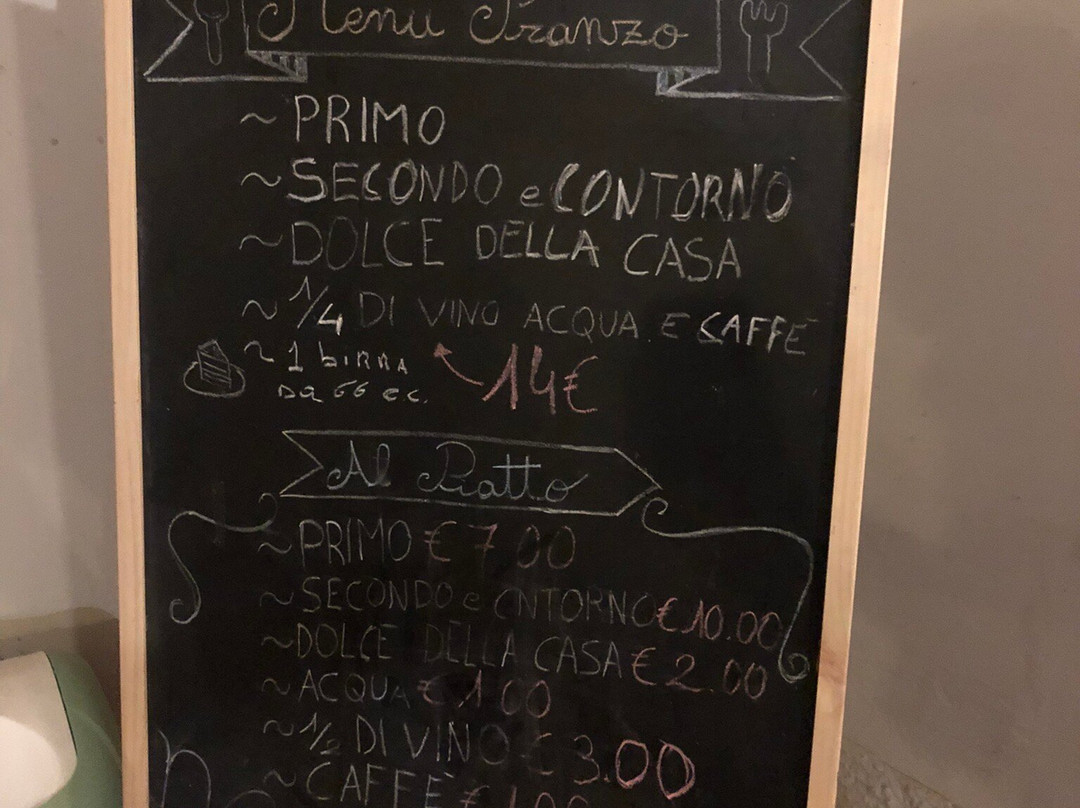 Menu Pranzo
~ PRIMO
~ SECONDO e CONTORNO
~ DOLCE DELLA CASA
~ 1/4 DI VINO ACQUA E CAFFE
~ 1 birra
da 66 c.c.
14€
Al Piatto
~ PRIMO € 7.00
~ SECONDO e CNTORNO € 10.00
~ DOLCE DELLA CASA € 2.00
~ ACQUA € 1.00
~ 1/2 DI VINO € 3.00
~ CAFFE € 1.00